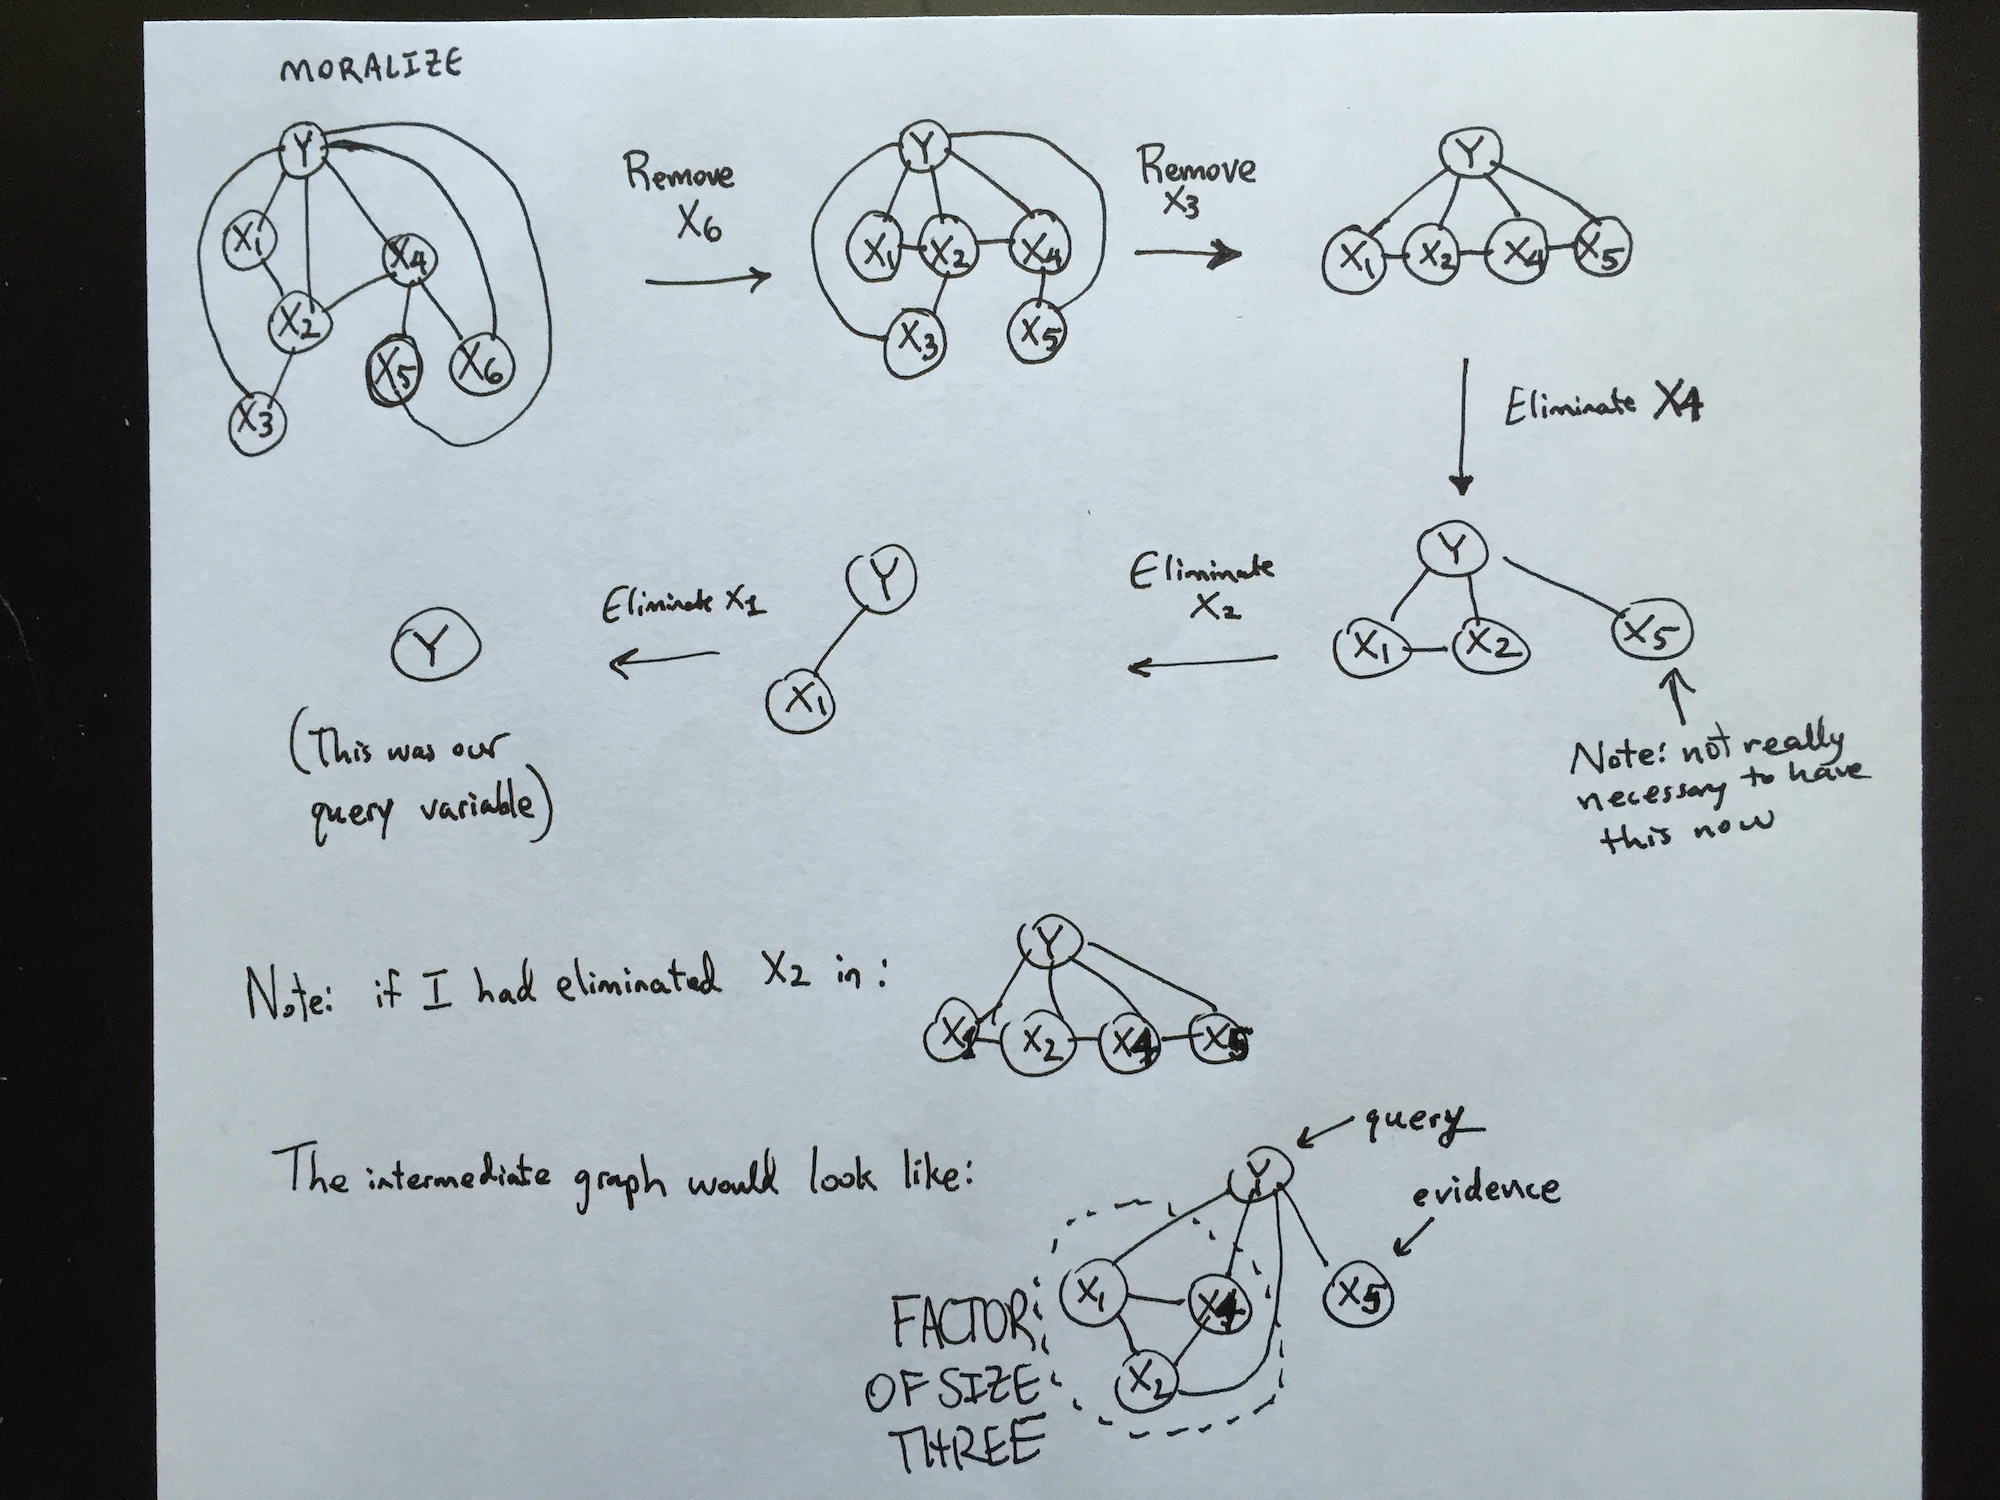 MORALIZE
Y
X1
X4
X2
X5
X6
X3
Remove
X6
Y
X1
X2
X4
X3
X5
Remove
X3
Y
X1
X2
X4
X5
Eliminate X4
Y
X1
X2
X5
Note: not really
necessary to have
this now
Eliminate
X2
Y
X1
Eliminate X1
Y
(This was our
query variable)
Note: if I had eliminated X2 in:
Y
X1
X2
X4
X5
The intermediate graph would look like:
query
evidence
Y
X1
X4
X5
X2
FACTOR
OF SIZE
THREE